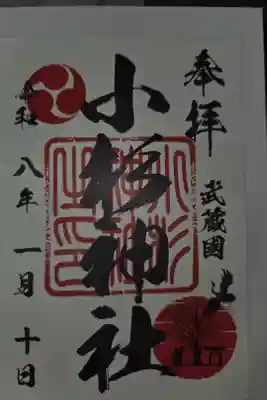 奉拝
武蔵國
小杉神社
令和八年一月十日